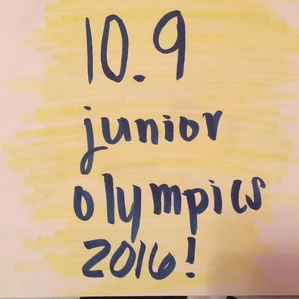 10.9
junior
olympics
2016!